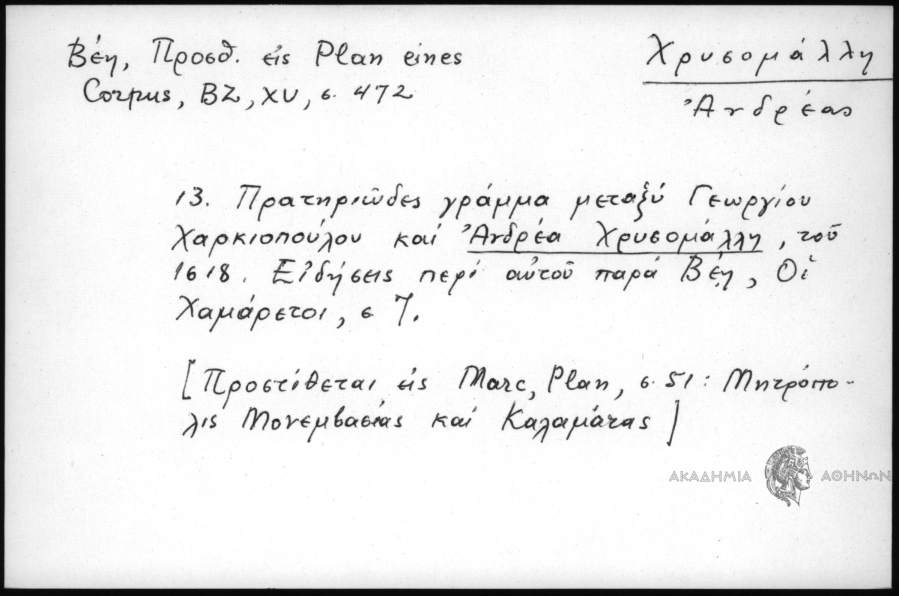 Βέη, Προσθ. εἰς Plan eines
Corpus, BZ, XV, σ. 472
Χρυσομάλλη
Ἀνδρέας
13. Πρατηριῶδες γράμμα μεταξύ Γεωργίου
Χαρκιοπούλου καί Ἀνδρέα Χρυσομάλλη, τοῦ
1618. Εἰδήσεις περί αὐτοῦ παρά Βέῃ, Οἱ
Χαμάρετοι, σ 7.
[Προστίθεται εἰς Marc, Plan, σ. 51: Μητρόπο-
λις Μονεμβασίας καί Καλαμάτας]
ΑΚΑΔΗΜΙΑ ΑΘΗΝΩΝ